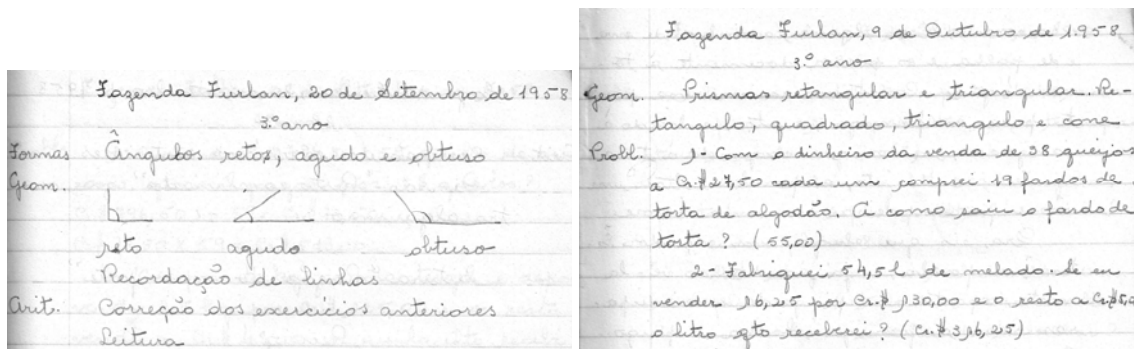 Fazenda Furlan, 20 de Setembro de 1958
3.º ano
Formas Ângulos retos, agudo e obtuso
Geom.
reto agudo obtuso
Recordação de linhas
Arit. Correção dos exercicios anteriores
Leitura
Fazenda Furlan, 9 de Outubro de 1.958
3.º ano
Geom. Prismas retangular e triangular. Re-
tangulo, quadrado, triangulo e cone
Probl. 1- Com o dinheiro da venda de 38 queijos
a Cr.$27,50 cada um comprei 19 fardos de
torta de algodão. A como saiu o fardo de
torta? (55,00)
2- Fabriquei 54,5l de melado. Se eu
vender 16,25 por Cr.$ 130,00 e o resto a Cr.$
o litro qto receberei? (Cr.$316,25)